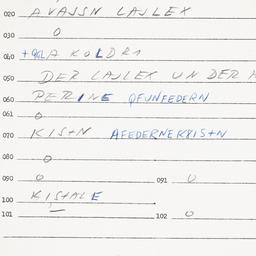 020 AVAJSN LAJLEX
030 O
040 +96LA KOLDRA
050 DER LAJLEX UN DER
060 PERINE QFUNFEDERN
061 O
070 KISTN AFEDERNEKRISTN
080 O
090 O 091 O
100 KISTALE
101 — 102 O